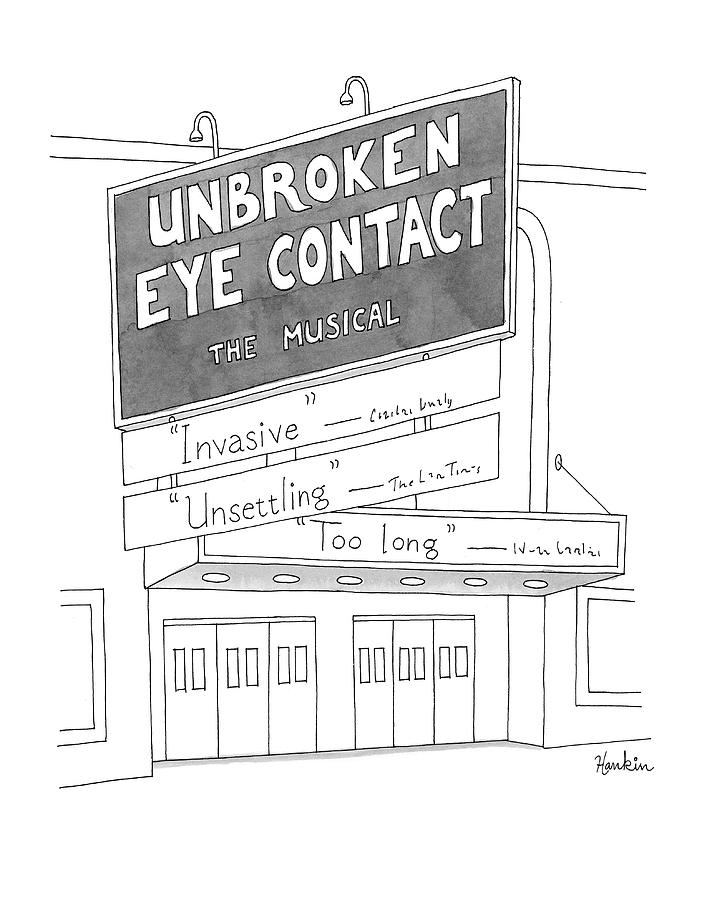 UNBROKEN
EYE CONTACT
THE MUSICAL
"Invasive" —
"Unsettling" — The
"Too long" —
Hankin